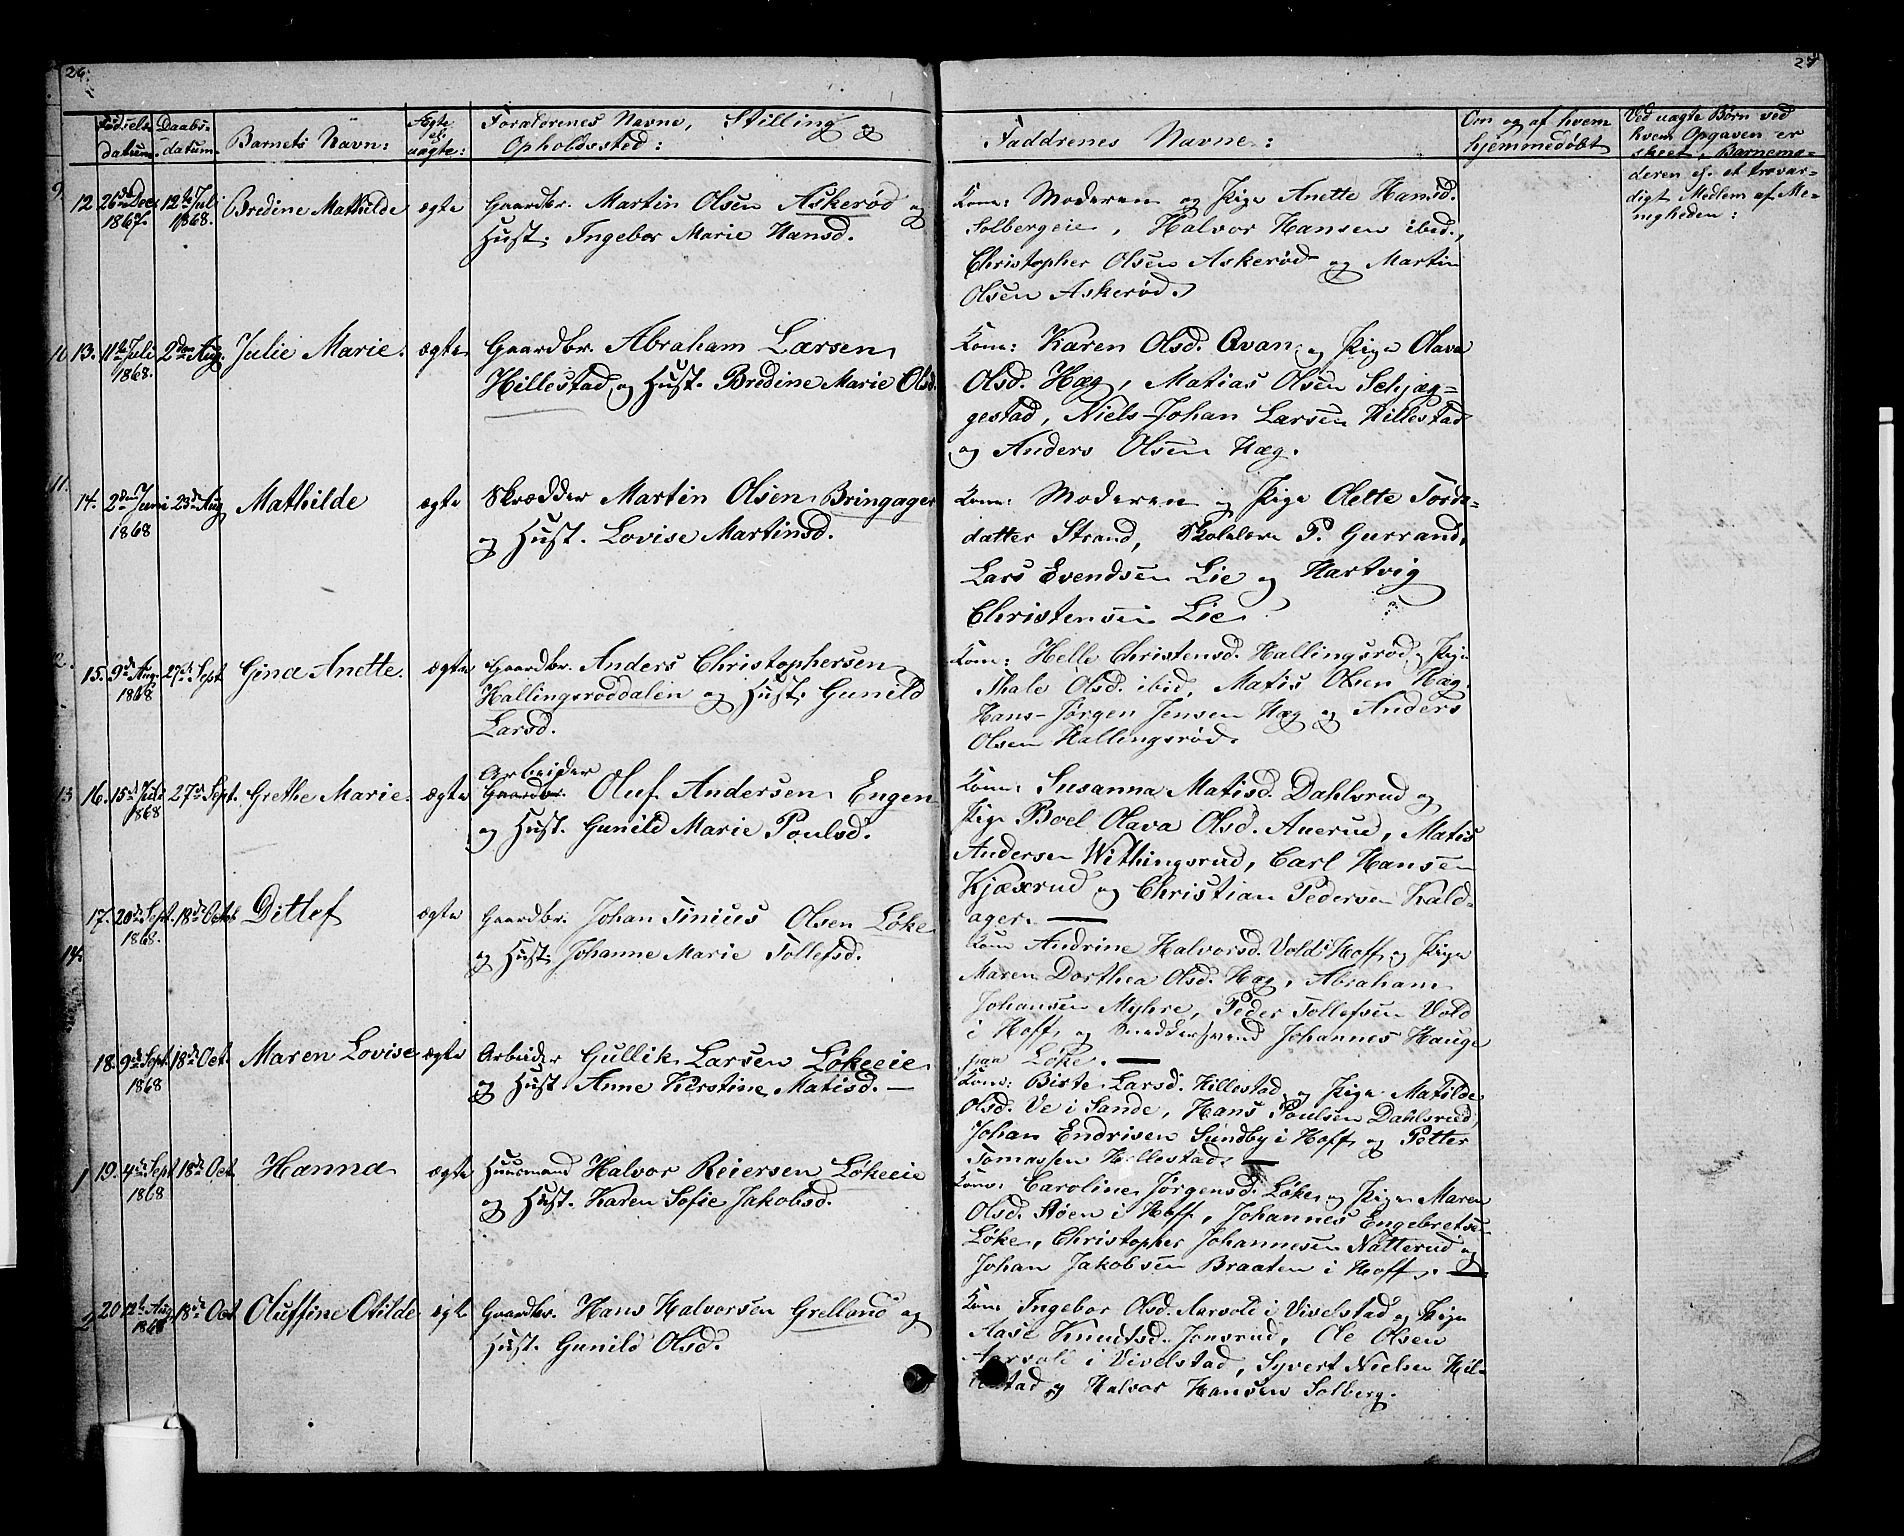 26.
27
Fødsels-
datum.
Daabs-
datum.
Barnets Navn:
Ægte
el.
uægte:
Forældrenes Navne, Stilling og
Opholdssted:
Faddrenes Navne:
Om og af hvem
hjemmedøbt
Ved uægte Børn ved
hvem Opgaven er
skeet, Barnemo-
deren el. et trovær-
digt Medlem af Me-
nigheden:
9.
12 26de Dec. 1867. 12te Juli 1868. Bredine Mathilde ægte
Gaardbr. Martin Olsen Askerød og
Hust. Ingebor Marie Hansd.
Kone: Moderen og Pige Anette Hansd.
Solbergeie, Halvor Hansen ibid.,
Christopher Olsen Askerød og Martin
Olsen Askerød.
10 13. 11te Juli 1868. 2den Aug. Julie Marie. ægte
Gaardbr. Abraham Larsen
Hillestad og Hust. Bredine Marie Olsd.
Kone: Karen Olsd. Qvan og Pige Olava
Olsd. Hæg, Matias Olsen Schjæg-
gestad, Niels-Johan Larsen Hillestad
og Anders Olsen Hæg.
11. 14. 2den Juni 1868 23de Aug Mathilde ægte
Skrædder Martin Olsen Bringager
og Hust. Lovise Martinsd.
Kone: Moderen og Pige Olette Tords-
datter Strand, Skolelærer P. Gurrand,
Lars Evendsen Lie og Hartvig
Christensen Lie
12. 15. 9de Aug. 1868 27de Sept Gina Anette. ægte
Gaardbr. Anders Christophersen
Hallingsrøddalen og Hust. Gunild
Larsd.
Kone: Helle Christensd. Hallingsrød, Pige
Thale Olsd. ibid, Matis Olsen Hæg,
Hans-Jørgen Jensen Hæg og Anders
Olsen Hallingsrød.
13 16. 15de Juli 1868 27de Sept. Grethe Marie. ægte
Arbeider
Gaardbr. Oluf Andersen Engen
og Hust. Gunild Marie Poulsd.
Kone: Susanna Matisd. Dahlsrud og
Pige Boel Olava Olsd. Auerud, Matis
Andersen Withingsrud, Carl Hansen
Kjæxrud og Christian Pedersen Kald-
ager.
14.
17. 20de Sept. 1868. 18de Octob Ditlef ægte
Gaardbr. Johan Sinius Olsen Løke
og Hust. Johanne Marie Tollefsd.
Kone Andrine Halvorsd. Vold i Hoff og Pige
Maren Dorthea Olsd. Hæg, Abraham
Johansen Myhre, Peder Tollefsen Vold
i Hoff, og Snedkersvend Johannes Hauge
paa Løke.
18. 9de Sept. 1868 18de Oct. Maren Lovise ægte
Arbeider Gullik Larsen Løkeeie
og Hust. Anne Kirstine Matisd.
Kone: Birte Larsd. Hillestad og Pige Matilde
Olsd. Ve i Sande, Hans Poulsen Dahlsrud,
Johan Endrisen Sundby i Hoff og Potter
Tomassen Hillestad.
1 19. 4de Sept. 1868 18de Oct. Hanna ægte
Huusmand Halvor Reiersen Løkeeie
og Hust. Karen Sofie Jakobsd.
Kone: Caroline Jørgensd. Løke og Pige Maren
Olsd. Støen i Hoff, Johannes Engebretsen
Løke, Christopher Johannesen Natterud og
Johan Jakobsen Braaten i Hoff.
2 20 12te Aug. 1868 18de Oct Oluffine Otilde ægte
Gaardbr. Hans Halvorsen Grelland og
Hust. Gunild Olsd.
Kone Ingebor Olsd. Aarvold i Vivelstad og Pige
Aase Knudtsd. Jonsrud, Ole Olsen
Aarvold i Vivelstad, Syvert Nielsen Hil-
lestad og Halvor Hansen Solberg.